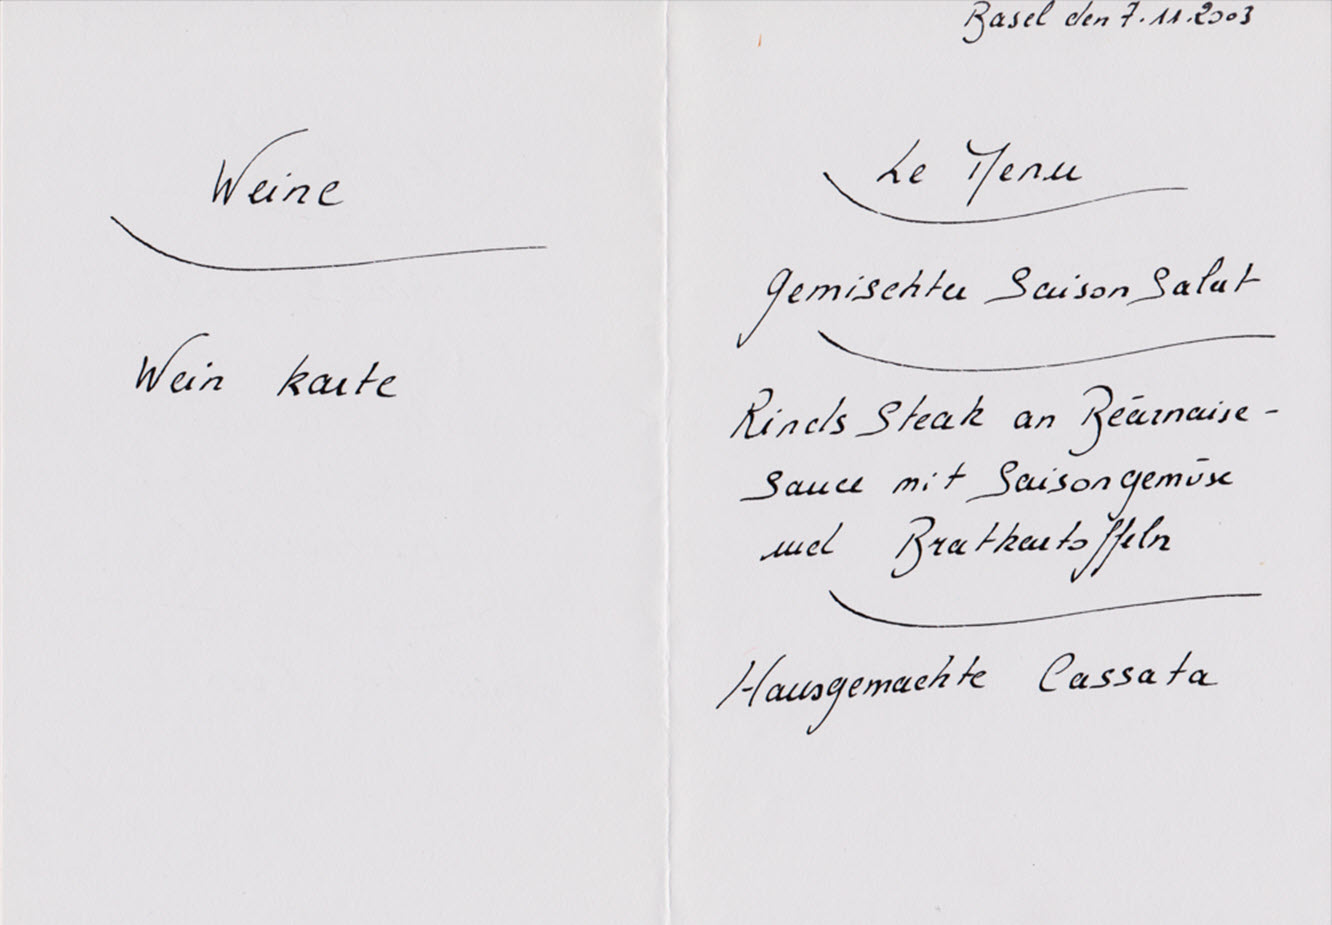 Weine
Wein karte
Basel den 7.11.2003
Le Menu
gemischter Saison Salat
Rinds Steak an Béarnaise-
Sauce mit Saisongemüse
und Bratkartoffeln
Hausgemachte Cassata